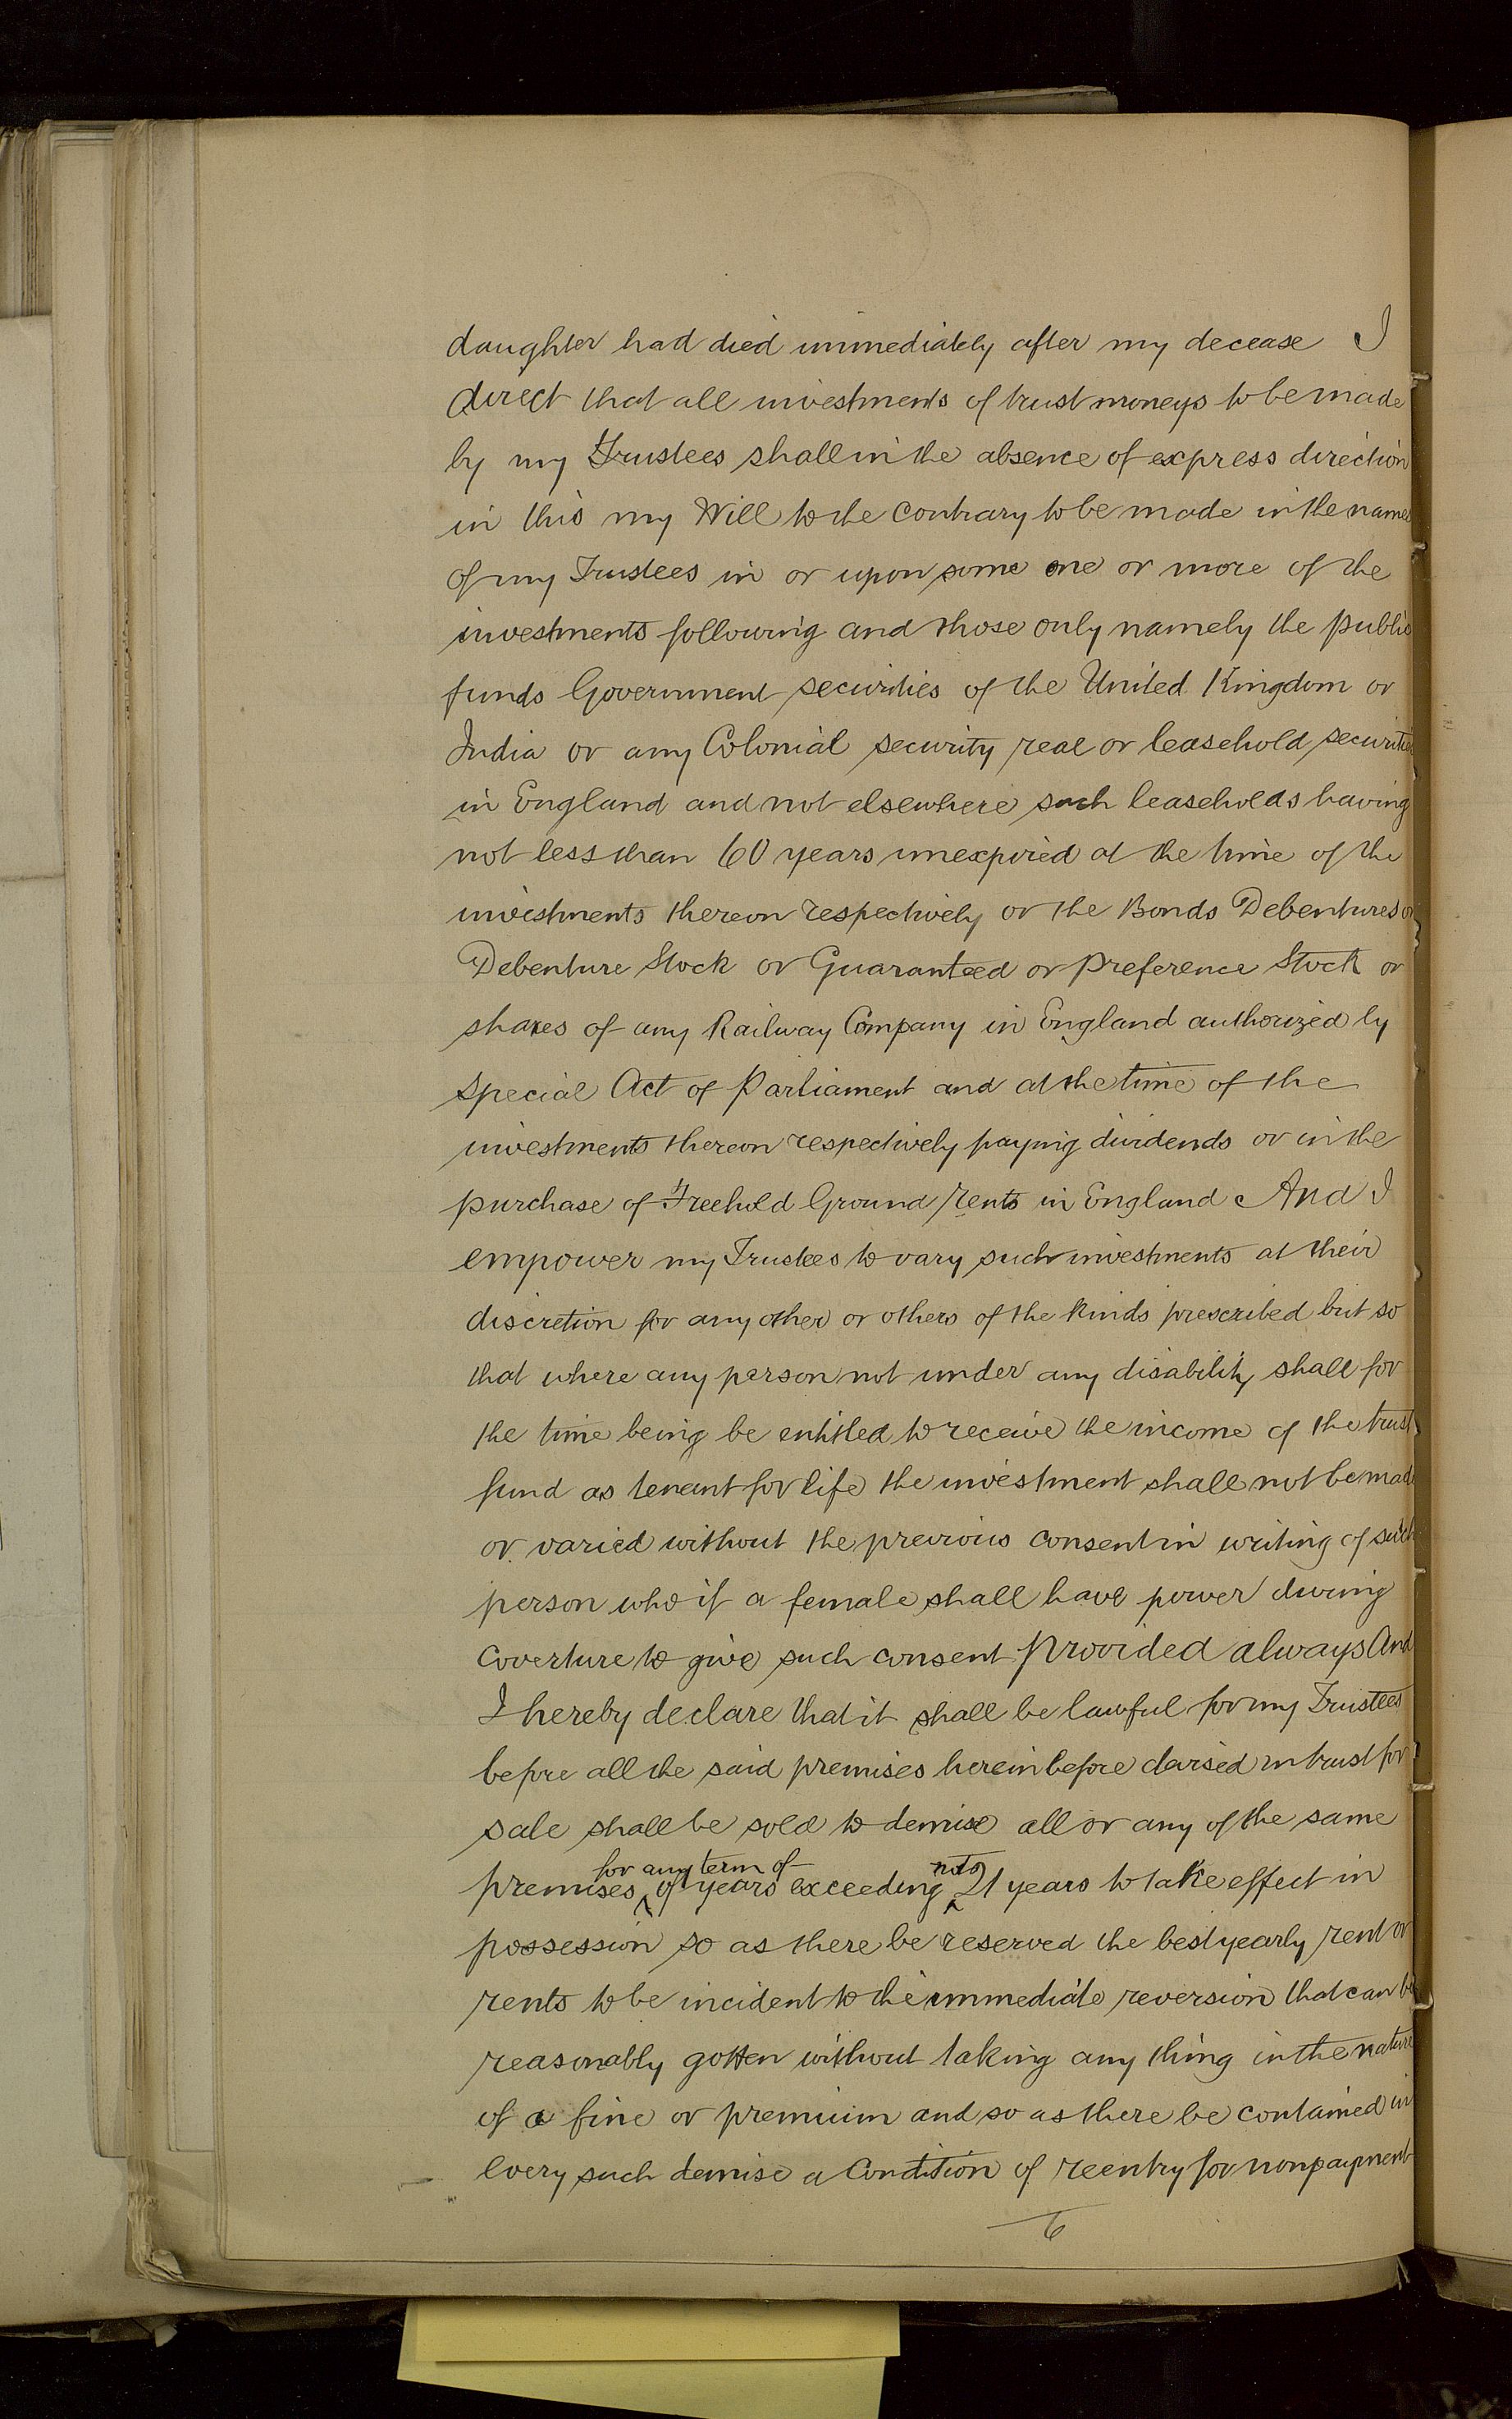 daughter had died immediately after my decease I
direct that all investments of trust moneys to be made
by my Trustees shall in the absence of express direction
in this my Will to the contrary to be made in the names
of my Trustees in or upon some one or more of the
investments following and those only namely the public
funds Government securities of the United Kingdom or
India or any Colonial security real or leasehold securities
in England and not elsewhere such leaseholds having
not less than 60 years unexpired at the time of the
investments thereon respectively or the Bonds Debentures or
Debenture Stock or Guaranteed or Preference Stock or
shares of any Railway Company in England authorized by
special Act of Parliament and at the time of the
investments thereon respectively paying dividends or in the
purchase of Freehold Ground rents in England And I
empower my Trustees to vary such investments at their
discretion for any other or others of the kinds prescribed but so
that where any person not under any disability shall for
the time being be entitled to receive the income of the trust
fund as tenant for life the investment shall not be made
or varied without the previous consent in writing of such
person who if a female shall have power during
Coverture to give such consent Provided always And
I hereby declare that it shall be lawful for my Trustees
before all the said premises hereinbefore devised in trust for
sale shall be sold to demise all or any of the same
for any term of not
premises of years exceeding 21 years to take effect in
possession so as there be reserved the best yearly rent or
rents to be incident to the immediate reversion that can be
reasonably gotten without taking any thing in the nature
of a fine or premium and so as there be contained in
every such demise a Condition of reentry for nonpayment
6